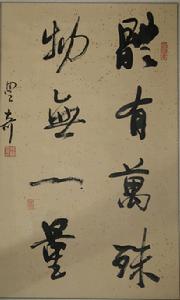 體有萬殊
物無一量